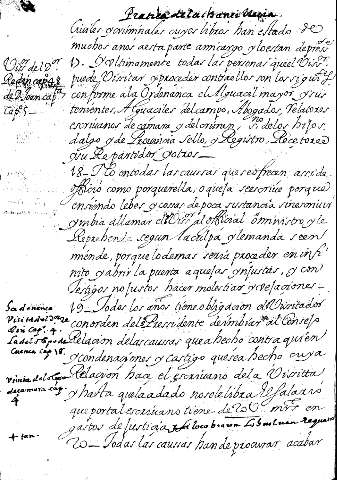 Practica de la chancilleria.
Ciuiles y criminales cuyos libros han estado de
muchos años aesta parte amicargo y lo estan de pres
17 - Y ultimamente todas las personas que el Viss.or
puede Vissitar y proceder contra ellos son los sig.tes
conforme ala Ordenanca el Alguacil mayor, y sus
tenientes, Alguaciles del campo, Abogados, Relatores
escriuanos de camara y del crimen, de los hijos
dalgo y de Prouincia sello, y Registro, Recetores
y su Repartidor y otros
18 - Y no en todas las caussas que se ofrecen assi de
officio como por querella, o quexa se escriue porque
en siendo lebes y cosas de poca sustancia
ymbia allamar el Viss.or al official o ministro y le
Reprehen segun la culpa y le manda se en
miende, porque lo demas seria proceder en infi
nito y abrir la puerta a quejas ynjustas, y con
testigos no justos hacer molestias y Relaciones
19 - Todos los años tiene obligacion el Vissitador
con orden del Pressidente de imbiar al Consejo
Relacion de las caussas que a hecho contra quien
y condenaciones y castigo que se a hecho cuya
Relacion hace el escriuano de la Vissitta
y hasta que la a dado no se le libra el salario
que por tal escriuano tiene de mrs en
gastos de Justicia
20 - Todas las caussas han de procurar acabar
Viss. del D.or
Redin cap. 48
de D. Juan
cap. 5
Ordenanca
Visitador
cap. 4.
la del obispo de
Cuenca cap. 18.
Visita del
de camara cap.
4
+ tan